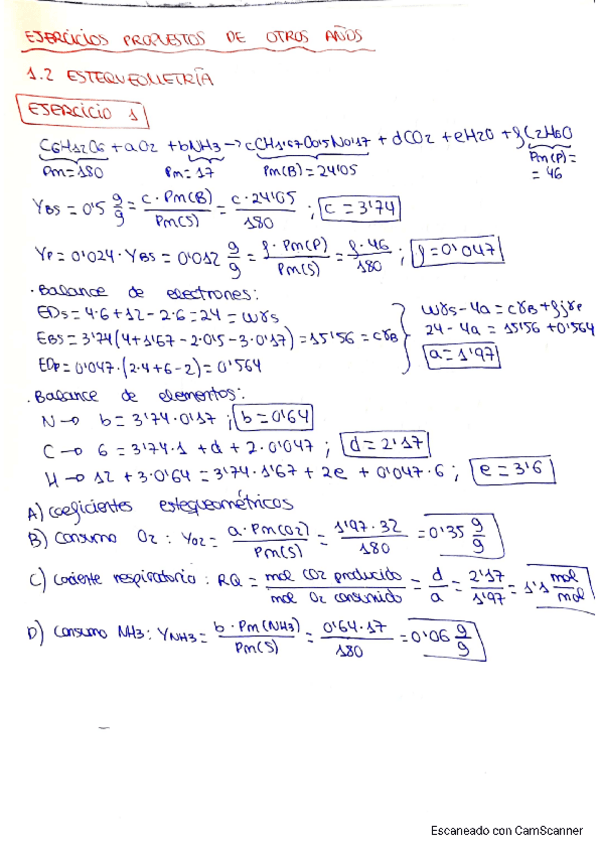 EJERCICIOS PROPUESTOS DE OTROS AÑOS
1.2 ESTEQUEOMETRÍA
EJERCICIO 1
C6H12O6 + aO2 + bNH3 → cCH1'67O0'5N0'17 + dCO2 + eH2O + fC2H6O
Pm=180 Pm=17 Pm(B)=24'05 Pm(P)= = 46
YBS = 0'5 g/g = c·Pm(B)/Pm(S) = c·24'05/180 ; c = 3'74
YP = 0'024·YBS = 0'012 g/g = f·Pm(P)/Pm(S) = f·46/180 ; f = 0'047
· Balance de electrones:
EDS = 4·6+12-2·6 = 24 = wγs
EBS = 3'74(4+1'67-2·0'5-3·0'17) = 15'56 = cγB
EDP = 0'047·(2·4+6-2) = 0'564
wγs - 4a = cγB + fjγP
24 - 4a = 15'56 + 0'564
a = 1'97
· Balance de elementos:
N → b = 3'74·0'17 ; b = 0'64
C → 6 = 3'74·1 + d + 2·0'047 ; d = 2'17
H → 12 + 3·0'64 = 3'74·1'67 + 2e + 0'047·6 ; e = 3'6
A) Coeficientes estequeométricos
B) Consumo O2 : YO2 = a·Pm(O2)/Pm(S) = 1'97·32/180 = 0'35 g/g
C) Cociente respiratorio : RQ = mol CO2 producido/mol O2 consumido = d/a = 2'17/1'97 = 1'1 mol/mol
D) Consumo NH3 : YNH3 = b·Pm(NH3)/Pm(S) = 0'64·17/180 = 0'06 g/g
Escaneado con CamScanner